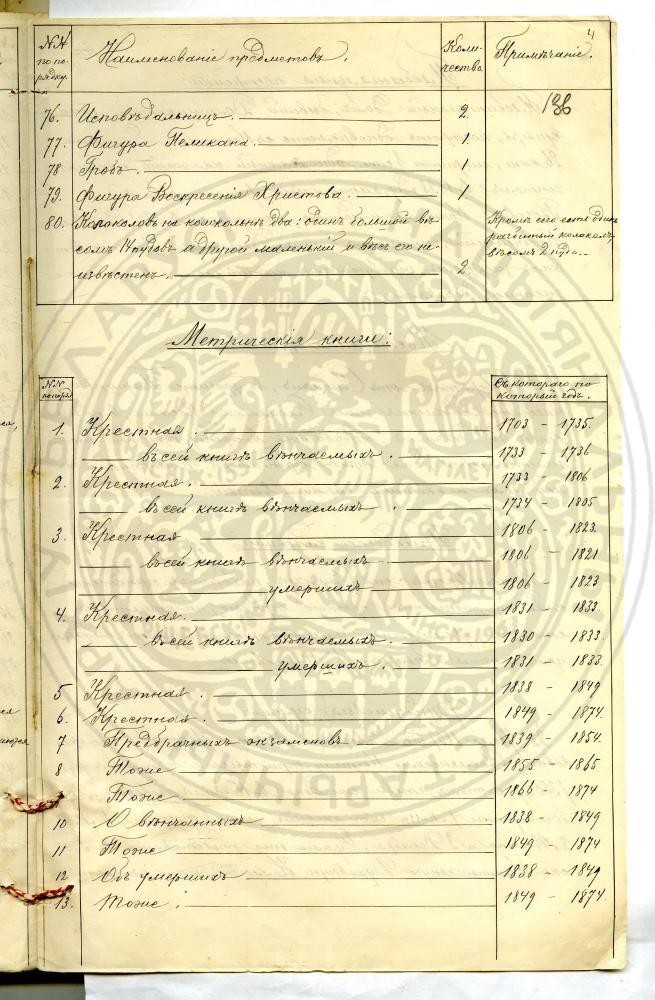 4
NN по порядку. Наименованіе предметовъ. Количества Примѣчаніе.
136
76. Исповѣдальницъ. 2.
77. Фигура Пеликана. 1.
78 Гробъ. 1
79. Фигура Воскресенія Христова. 1
80. Колоколовъ на колокольнѣ два: одинъ большой вѣ-
сомъ 14 пудовъ а другой маленькій и вѣсъ его не-
извѣстенъ. 2
Кромѣ сего есть одинъ
разбитый колоколъ
вѣсомъ 2 пуда.
Метрическія книги:
NN по поряд. Съ котораго по который годъ.
1. Крестная. 1703 - 1735.
въ сей книгѣ вѣнчаемыхъ. 1733 - 1736
2. Крестная. 1733 - 1806
въ сей книгѣ вѣнчаемыхъ. 1734 - 1805
3. Крестная. 1806 - 1823.
въ сей книгѣ вѣнчаемыхъ 1806 - 1821
умершихъ 1806 - 1823
4. Крестная. 1831 - 1833.
въ сей книгѣ вѣнчаемыхъ. 1830 - 1833
умершихъ. 1831 - 1833.
5 Крестная. 1838 - 1849
6. Крестная. 1849 - 1874.
7 Предбрачныхъ экзаменовъ 1839 - 1854.
8 Тоже 1855 - 1865
Тоже 1866 - 1874
10 О вѣнчанныхъ 1838 - 1849
11 Тоже 1849 - 1874
12 Объ умершихъ 1838 - 1849
13. Тоже. 1849 - 1874.